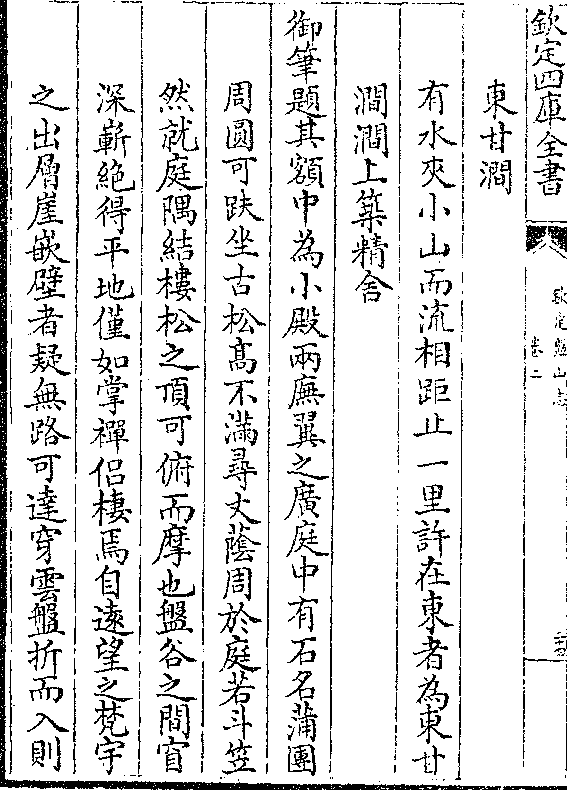 欽定四庫全書
欽定盤山志
卷二
東甘澗
有水夾小山而流相距止一里許在東者為東甘
澗澗上築精舍
御筆題其額中為小殿兩廡翼之廣庭中有石名蒲團
周圓可趺坐古松髙不滿尋丈蔭周於庭若斗笠
然就庭隅結樓松之頂可俯而摩也盤谷之間窅
深嶄絶得平地僅如掌禪侶棲焉自遠望之梵宇
之出層崖嵌壁者疑無路可達穿雲盤折而入則